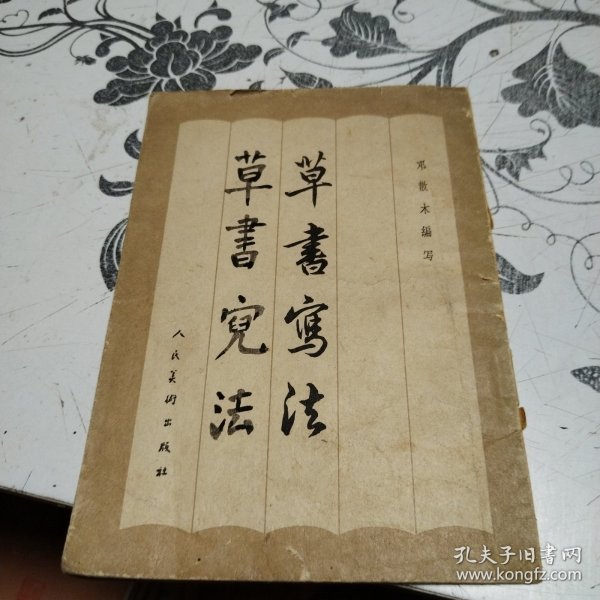 邓散木編写
草書寫法
草書法
人民美術出版社
孔夫子旧書网
www.kongfz.com